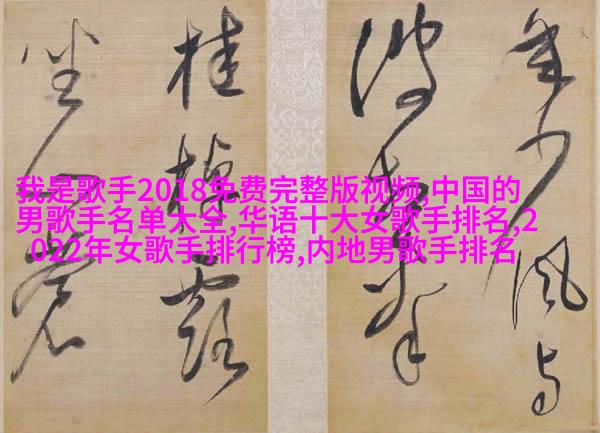 少风与
波
桂棹露
坐
我是歌手2018免费完整版视频,中国的
男歌手名单大全,华语十大女歌手排名,2
022年女歌手排行榜,内地男歌手排名